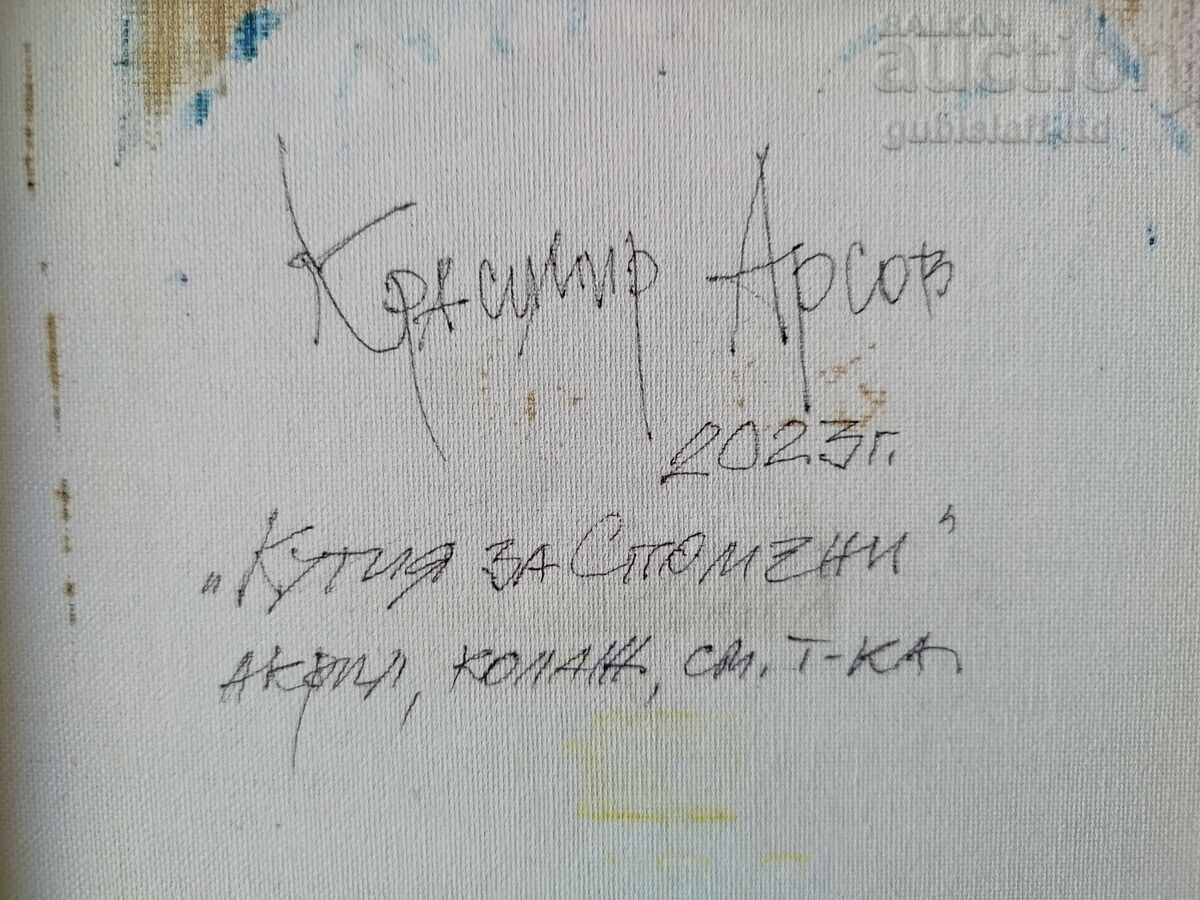 BALKAN
auction
gubislatltd
Красимир Арсов
2023г.
„Кутия за Спомени”
акрил, колаж, см. т-ка